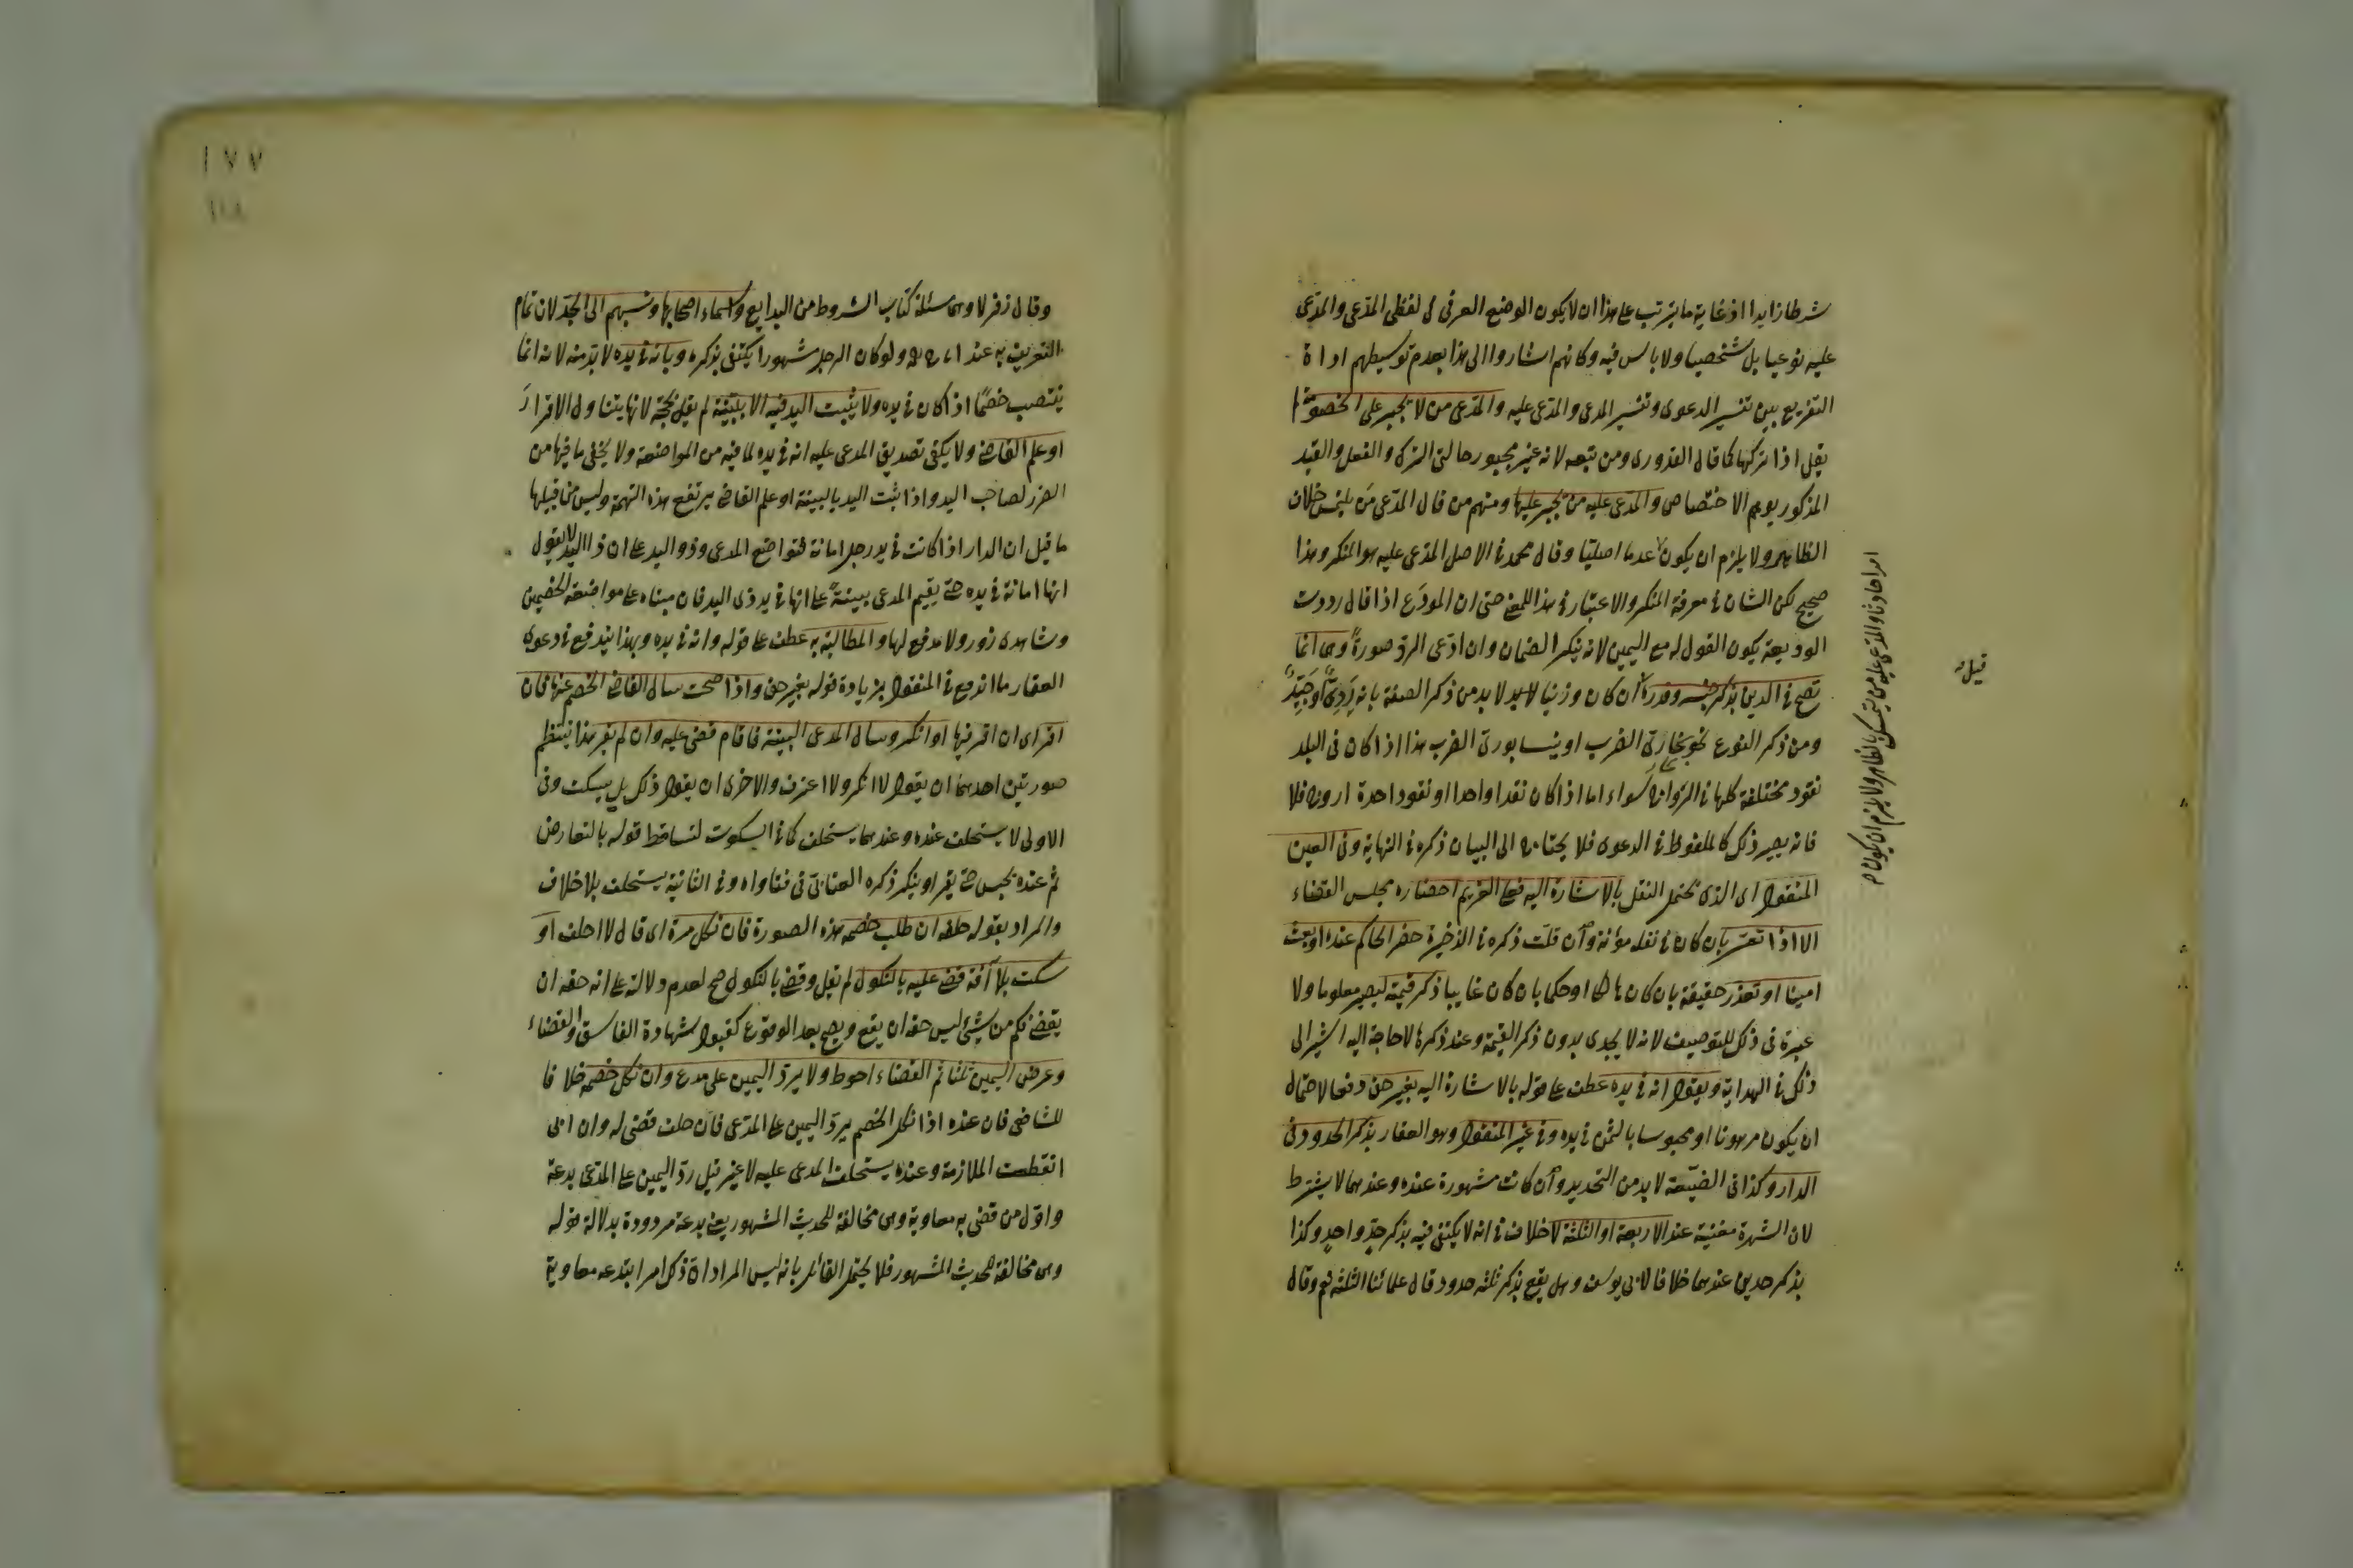 شرطا زايدا اذ غاية ما يترتب على هذا ان لا يكون الوضع العرفى فى لفظى المدعى والمدعى
عليه نوعيا بل شخصيا ولا باس فيه وكانهم اشاروا الى هذا بعدم توسيطهم اداة
التفريع بين تفسير الدعوى وتفسير المدعى والمدعى عليه والمدعى من لا يجبر على الخصومة لم
يقل اذا تركها كما قال القدورى ومن تبعه لانه غير مجبور حالتى الترك والفعل والقيد
المذكور يوهم الاختصاص والمدعى عليه من يجبر عليها ومنهم من قال المدعى من يلتمس خلاف
الظاهر ولا يلزم ان يكون عدما اصليا وقال محمد فى الاصل المدعى عليه هو المنكر وهذا
صحيح لكن الشان فى معرفة المنكر والاعتبار فى هذا للمعنى حتى ان المودَع اذا قال رددت
الوديعة يكون القول له مع اليمين لانه ينكر الضمان وان ادّعى الردّ صورةً وهى انما
تصح فى الدين بذكر جنسه وقدره ان كان وزنيا لا بد من ذكر الصفة بانه رَدِىٌّ او جَيِّدٌ
ومن ذكر النوع نحو بخارىّ الضرب او نيسابورىّ الضرب هذا اذا كان فى البلد
نقود مختلفة كلها فى الرواج سواء اما اذا كان نقدا واحدا او نقود احدها اروج فلا
فانه يصير ذلك كالملفوظ فى الدعوى فلا يحتاج الى البيان ذكره فى النهاية وفى العين
المنقول اى الذى يحتمل النقل بالاشارة اليه فعلى الغريم احضاره مجلس القضاء
الا اذا تعسّر بان كان فى نقله مؤنة وان قلّت ذكره فى الذخيرة حضر الحاكم عنده او بعث
امينا او تعذر حقيقة بان كان هالكا او حكما بان كان غايبا ذكر قيمته ليصير معلوما ولا
عبرة فى ذلك للتوصيف لانه لا يجدى بدون ذكر القيمة وعند ذكرها لا حاجة اليه اشير الى
ذلك فى الهداية ويقول انه فى يده عطف على قوله بالاشارة اليه بغير حق دفعا لاحتمال
ان يكون مرهونا او محبوسا بالثمن فى يده وفى غير المنقول وهو العقار بذكر الحدود فى
الدار وكذا فى الضيعة لا بد من التحديد وان كانت مشهورة عنده وعندهما لا يشترط
لان الشهرة مغنية عنه الاربعة او الثلثة لا خلاف فى انه لا يكتفى فيه بذكر حدٍّ واحدٍ وكذا
بذكر حدين عندهما خلافا لابى يوسف وهل يقع بذكر ثلثة حدود قال علمائنا الثلثة نعم وقال
قيل
امرا حادثا والمدعى عليه من يتمسك بالظاهر ولا يلزم ان يكون
١٧٧
وقال زفر لا وهى مسئلة كتاب الشروط من البدايع واسماء اصحابها ونسبهم الى الجد لان تمام
التعريف به عند ولو كان الرجل مشهورا يكتفى بذكره وبانه فى يده لا بد منه لانه انما
ينتصب خصمًا اذا كان فى يده ولا يثبت اليد فيه الا ببيّنة لم يقل بحجة لانها يتناول الاقرار
او علم القاضى ولا يكفى تصديق المدعى عليه انه فى يده لما فيه من المواضعة ولا يخفى ما فيها من
الضرر لصاحب اليد واذا ثبت اليد بالبينة او علم القاضى يرتفع هذه التهمة وليس من قبيلها
ما قيل ان الدار اذا كانت فى يد رجل امانة فتواضع المدعى وذو اليد على ان ذا اليد لا يقول
انها امانة فى يده حتى يقيم المدعى بينة على انها فى يد ذى اليد فان مبناه على مواضعة الخصمين
وشاهدى زور ولا مدفع لها والمطالبة به عطف على قوله وانه فى يده وبهذا يندفع فى دعوى
العقار ما اندفع فى المنقول بزيادة قوله بغير حق واذا صحت سال القاضى الخصم عنها فان
اقر اى ان اقر بها او انكر وسال المدعى البينة فاقام قضى عليه وان لم يقر هذا ينتظم
صورتين احدهما ان يقول لا انكر ولا اعرف والاخرى ان يقول ذلك بل يسكت وفى
الاولى لا يستحلف عنده وعندهما يستحلف كما فى السكوت لتساقط قوله بالتعارض
ثم عنده يحبس حتى يقر او ينكر ذكره العتابىّ فى فتاواه وفى الثانية يستحلف بلا خلاف
والمراد بقوله حلفه ان طلب خصمه هذه الصورة فان نكل مرة اى قال لا احلف او
سكت بلا آفة قضى عليه بالنكول لم يقل وقضى بالنكول صح لعدم دلالة على انه حقه ان
يقضى فكم من شيئ ليس حقه ان يقع ويصح بعد الوقوع كقبول شهادة الفاسق والقضاء
وعرض اليمين ثلثا ثم القضاء احوط ولا يردّ اليمين على مدع وان نكل خصمه خلافا
للشافعى فان عنده اذا نكل الخصم يردّ اليمين على المدّعى فان حلف قضى له وان ابى
انقطعت الملازمة وعنده يستحلف المدعى عليه لا غير قيل ردّ اليمين على المدعى بدعة
واوّل من قضى به معاوية وهى مخالفة للحديث المشهور يعنى بدعة مردودة بدلالة قوله
وهى مخالفة للحديث المشهور فلا يحتمل القائل بانه ليس المراد ان ذلك امر ابتدعه معاوية